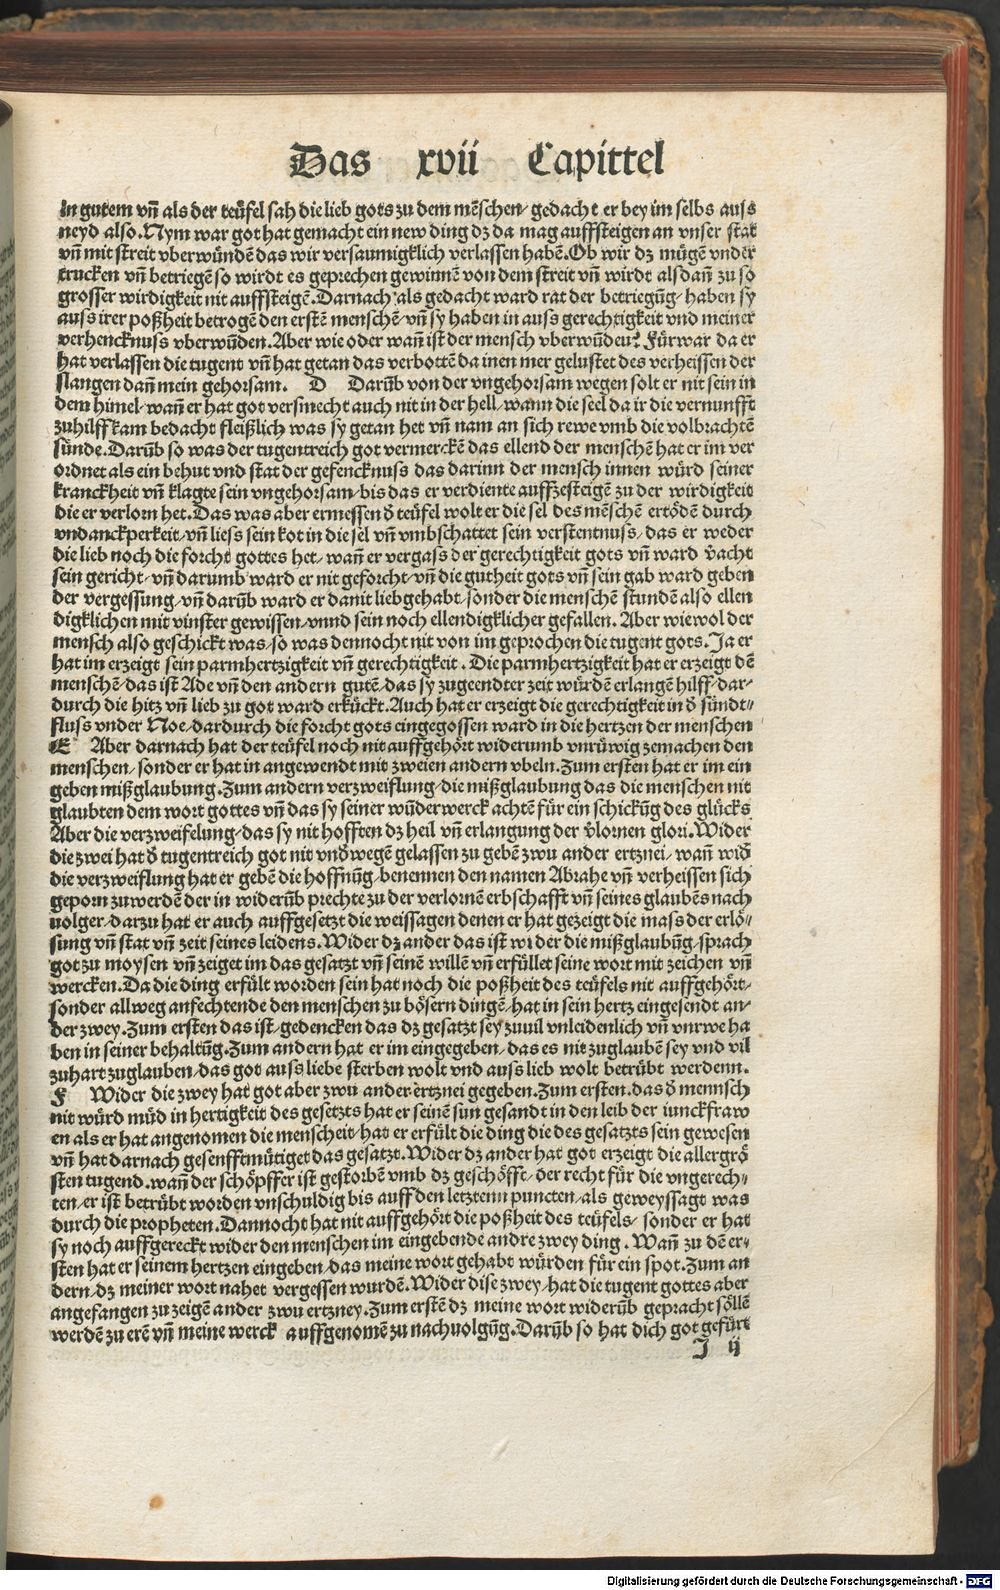 Das xvii Capittel
in gutem vñ als der teüfel sah die lieb gots zu dem mẽschen/ gedacht er bey im selbs auss
neyd also. Nym war got hat gemacht ein new ding dz da mag auffsteigen an vnser stat
vñ mit streit vberwündẽ das wir versaumigklich verlassen habẽ. Ob wir dz mügẽ vnder
trucken vñ betriegẽ so wirdt es geprechen gewinnẽ von dem streit vñ wirdt alsdañ zu so
grosser wirdigkeit nit auffsteigẽ. Darnach als gedacht ward rat der betriegũg/ haben sy
auss irer poßheit betrogẽ den erstẽ menschẽ/ vñ sy haben in auss gerechtigkeit vnd meiner
verhencknuss vberwũden. Aber wie oder wañ ist der mensch vberwũden? Fürwar da er
hat verlassen die tugent vñ hat getan das verbottẽ da inen mer gelustet des verheissen der
slangen dañ mein gehorsam. D Darũb von der vngehorsam wegen solt er nit sein in
dem himel/ wañ er hat got versmecht auch nit in der hell/ wann die seel da ir die vernunfft
zuhilff kam bedacht fleißlich was sy getan het vñ nam an sich rewe vmb die volbrachtẽ
sünde. Darũb so was der tugentreich got vermerckẽ das ellend der menschẽ hat er im ver
ordnet als ein behut vnd stat der gefencknuss das darinn der mensch innen würd seiner
kranckheit vñ klagte sein vngehorsam/ bis das er verdiente auffzesteigẽ zu der wirdigkeit
die er verlorn het. Das was aber ermessen ð teüfel wolt er die sel des mẽschẽ ertödẽ durch
vndanckperkeit/ vñ liess sein kot in die sel vñ vmbschattet sein verstentnuss/ das er weder
die lieb noch die forcht gottes het/ wañ er vergass der gerechtigkeit gots vñ ward v̈acht
sein gericht/ vñ darumb ward er nit geforcht/ vñ die gutheit gots vñ sein gab ward geben
der vergessung/ vñ darũb ward er damit liebgehabt/ sonder die menschẽ stundẽ also ellen
digklichen mit vinster gewissen/ vnnd sein noch ellendigklicher gefallen. Aber wiewol der
mensch also geschickt was/ so was dennocht nit von im geprochen die tugent gots. Ja er
hat im erzeigt sein parmhertzigkeit vñ gerechtigkeit. Die parmhertzigkeit hat er erzeigt dẽ
menschẽ/ das ist Ade vñ den andern gutẽ/ das sy zugeendter zeit würdẽ erlangẽ hilff/ dar-
durch die hitz vñ lieb zu got ward erkückt. Auch hat er erzeigt die gerechtigkeit in ð sündt-
fluss vnder Noe/ dardurch die forcht gots eingegossen ward in die hertzen der menschen
E Aber darnach hat der teüfel noch nit auffgehört widerumb vnrüwig zemachen den
menschen/ sonder er hat in angewendt mit zweien andern vbeln. Zum ersten hat er im ein
geben mißglaubung. Zum andern verzweiflung/ die mißglaubung das die menschen nit
glaubten dem wort gottes vñ das sy seiner wũderwerck achtẽ für ein schickũg des glücks
Aber die verzweifelung/ das sy nit hofften dz heil vñ erlangung der v̈lornen glori. Wider
die zwei hat ð tugentreich got nit vnðwegẽ gelassen zu gebẽ zwu ander ertznei/ wañ wið
die verzweiflung hat er gebẽ die hoffnũg/ benennen den namen Abrahe vñ verheissen sich
geporn zuwerdẽ der in widerũb prechte zu der verlornẽ erbschafft vñ seines glaubẽs nach
uolger/ darzu hat er auch auffgesetzt die weissagen denen er hat gezeigt die mass der erlö-
sung vñ stat vñ zeit seines leidens. Wider dz ander das ist wider die mißglaubũg/ sprach
got zu moysen vñ zeiget im das gesatzt vñ seinẽ willẽ vñ erfüllet seine wort mit zeichen vñ
wercken. Da die ding erfült worden sein hat noch die poßheit des teüfels nit auffgehört/
sonder allweg anfechtende den menschen zu bösern dingẽ/ hat in sein hertz eingesendt an-
der zwey. Zum ersten das ist/ gedencken das dz gesatzt sey zuuil vnleidenlich vñ vnrwe ha
ben in seiner behaltũg. Zum andern hat er im eingegeben/ das es nit zuglaubẽ sey vnd vil
zuhart zuglauben/ das got auss liebe sterben wolt vnd auss lieb wolt betrübt werdenn.
F Wider die zwey hat got aber zwu ander ertznei gegeben. Zum ersten. das ð mennsch
nit würd müd in hertigkeit des gesetzts hat er seinẽ sun gesandt in den leib der iunckfraw
en als er hat angenomen die menscheit/ hat er erfült die ding die des gesatzts sein gewesen
vñ hat darnach gesenfftmütiget das gesatzt. Wider dz ander hat got erzeigt die allergrö
sten tugend. wañ der schöpffer ist gestorbẽ vmb dz geschöfft/ der recht für die vngerech-
ten/ er ist betrübt worden vnschuldig bis auff den letztenn puncten/ als geweyssagt was
durch die propheten. Dannocht hat nit auffgehört die poßheit des teüfels/ sonder er hat
sy noch auffgereckt wider den menschen im eingebende andre zwey ding. Wañ zu dẽ er-
sten hat er seinem hertzen eingeben/ das meine wort gehabt würden für ein spot. Zum an
dern/ dz meiner wort nahet vergessen wurdẽ. Wider dise zwey/ hat die tugent gottes aber
angefangen zu zeigẽ ander zwu ertzney. Zum erstẽ dz meine wort widerũb gepracht söllẽ
werdẽ zu erẽ vñ meine werck auffgenomẽ zu nachuolgũg. Darũb so hat dich got gefürt
J ij
Digitalisierung gefördert durch die Deutsche Forschungsgemeinschaft - DFG